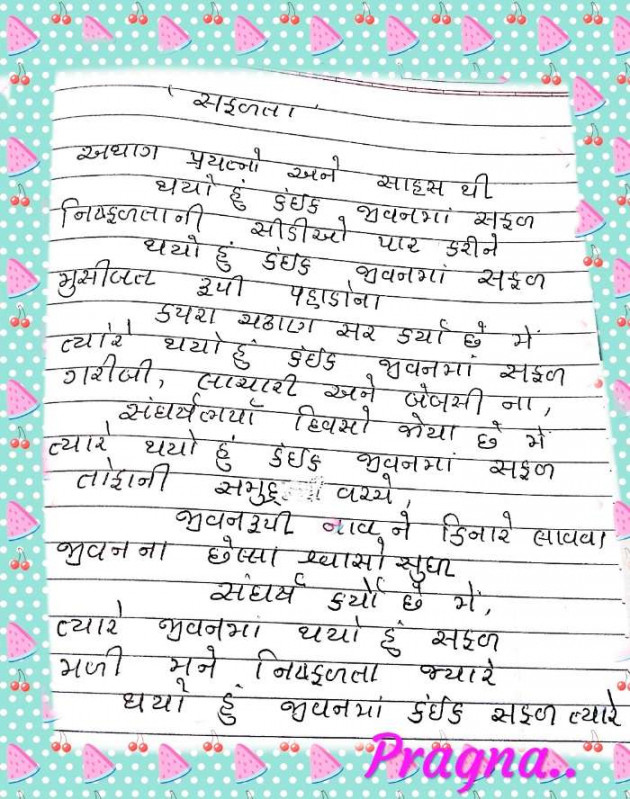 'સફળતા'
અથાગ પ્રયત્નો અને સાહસ થી
થયો હું કંઈક જીવનમાં સફળ
નિષ્ફળતાની સીડીઓ પાર કરીને
થયો હું કંઈક જીવનમાં સફળ
મુસીબત રૂપી પહાડોના
કપરા ચઢાણ સર કર્યા છે મેં
ત્યારે થયો હું કંઈક જીવનમાં સફળ
ગરીબી, લાચારી અને બેબસી ના,
સંઘર્ષભર્યા દિવસો જોયા છે મેં
ત્યારે થયો હું કંઈક જીવનમાં સફળ
તોફાની વચ્ચે,
જીવનરૂપી નાવ ને કિનારે લાવવા
જીવન ના છેલ્લા શ્વાસો સુધી
સંઘર્ષ કર્યો છે મેં,
ત્યારે જીવનમાં થયો હું સફળ
મળી મને નિષ્ફળતા જ્યારે
થયો હું જીવનમાં કંઈક સફળ ત્યારે
Pragna..